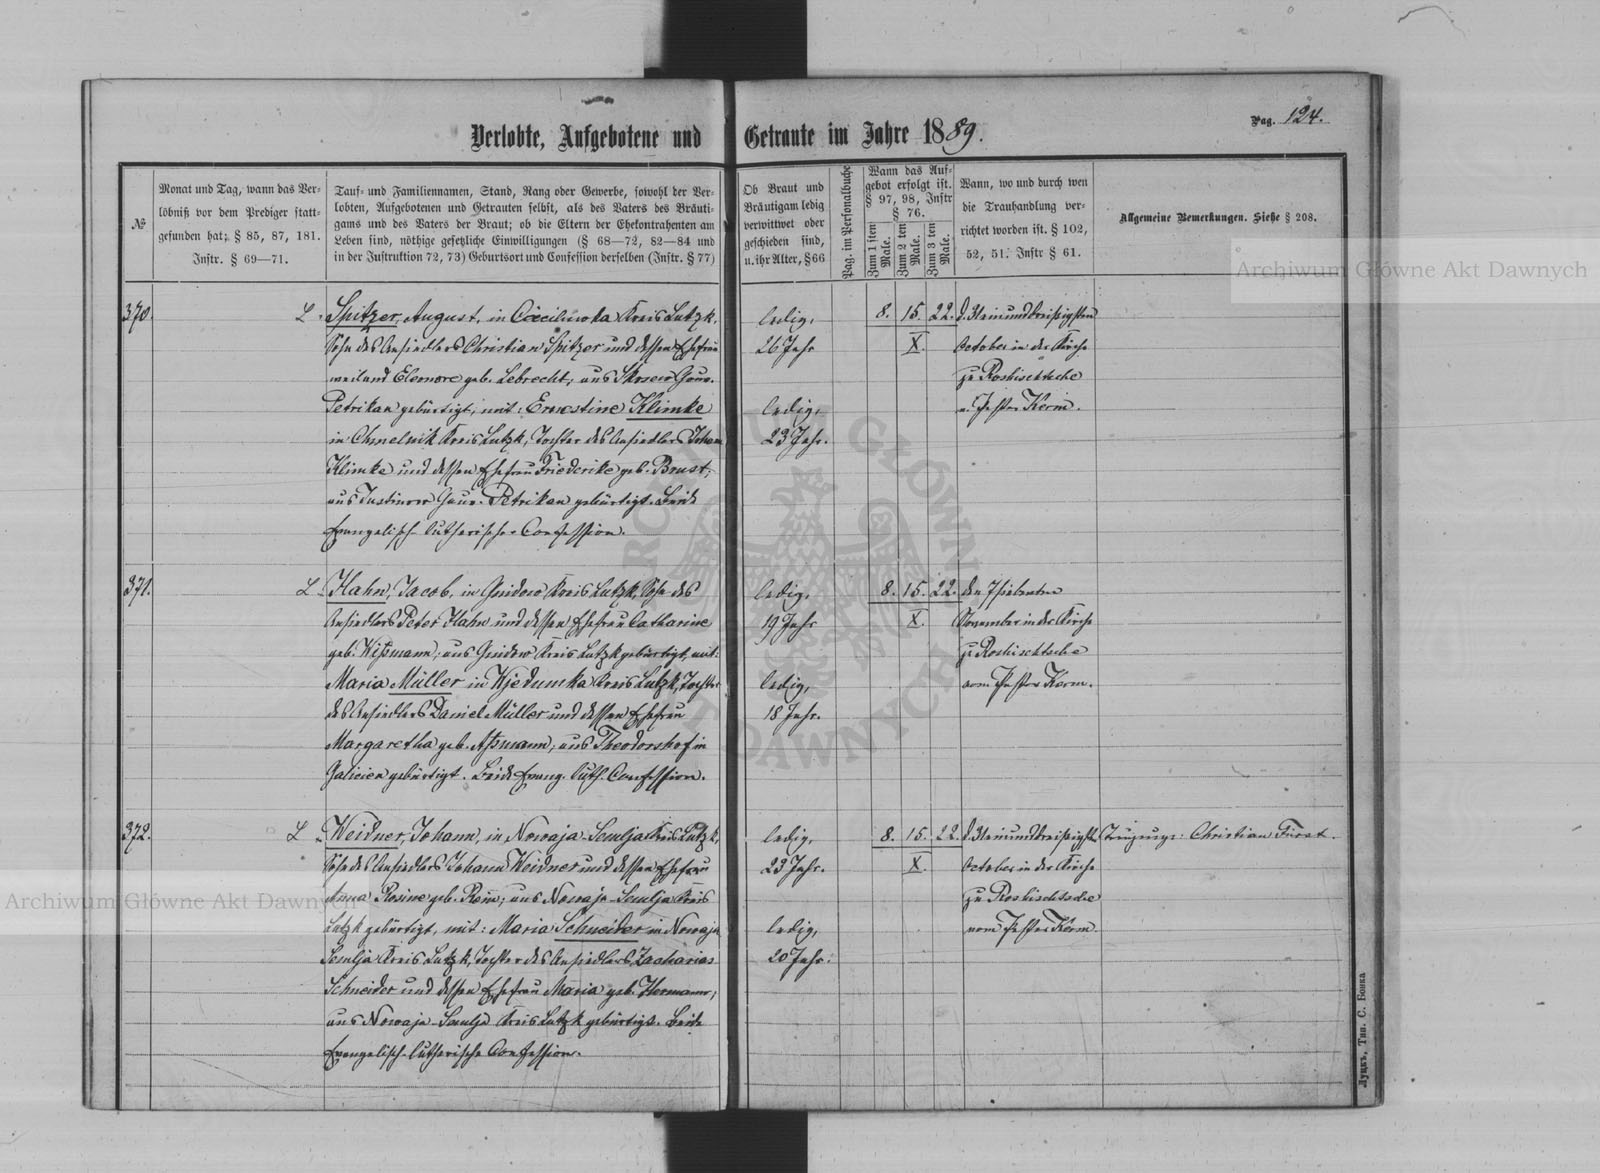 Verlobte, Aufgebotene und Getraute im Jahre 1889.
Pag. 124.
№
Monat und Tag, wann das Ver-
löbniß vor dem Prediger statt-
gefunden hat; § 85, 87, 181.
Instr. § 69—71.
Tauf- und Familiennamen, Stand, Rang oder Gewerbe, sowohl der Ver-
lobten, Aufgebotenen und Getrauten selbst, als des Vaters des Bräuti-
gams und des Vaters der Braut; ob die Eltern der Ehekontrahenten am
Leben sind, nöthige gesetzliche Einwilligungen (§ 68—72, 82—84 und
in der Instruktion 72, 73) Geburtsort und Confession derselben (Instr. § 77)
Ob Braut und
Bräutigam ledig
verwittwet oder
geschieden sind,
u. ihr Alter, § 66
Pag. im Personalbuche
Wann das Auf-
gebot erfolgt ist.
§ 97, 98, Instr
§ 76.
Zum 1 sten
Male.
Zum 2 ten
Male.
Zum 3 ten
Male.
Wann, wo und durch wen
die Trauhandlung ver-
richtet worden ist. § 102,
52, 51. Instr § 61.
Allgemeine Bemerkungen. Siehe § 208.
370.
L.
Spitzer, August, in Cäciliwka Kreis Lutzk,
Sohn des Ansiedlers Christian Spitzer und dessen Ehefrau
weiland Eleonore geb. Lebrecht; aus Gouv.
Petrikau gebürtigt, mit: Ernestine Klimke
in Chmelnik Kreis Lutzk, Tochter des Ansiedlers Johann
Klimke und dessen Ehefrau Friederike geb. Brust,
aus Justinow Gouv. Petrikau gebürtigt. Beide
Evangelisch-lutherischer Confession.
ledig,
26 Jahr
ledig,
23 Jahr.
8. 15. 22.
X.
d. Einunddreißigsten
October in der Kirche
zu Roshischtsche
v. Pastor Kerm.
371.
L.
Hahn, Jacob, in Gnidow Kreis Lutzk, Sohn des
Ansiedlers Peter Hahn und dessen Ehefrau Catharine
geb. Wißmann; aus Gnidow Kreis Lutzk gebürtigt, mit:
Maria Müller in Wjedumka Kreis Lutzk, Tochter
des Ansiedlers Daniel Müller und dessen Ehefrau
Margaretha geb. Aßmann, aus Theodorshof in
Galicien gebürtigt. Beide Evang. Luth. Confession.
ledig,
19 Jahr
ledig,
18 Jahr.
8. 15. 22.
X.
den Siebenten
November in der Kirche
zu Roshischtsche
vom Pastor Kerm.
372.
L.
Weidner, Johann, in Nowaja-Semlja Kreis Lutzk,
Sohn des Ansiedlers Johann Weidner und dessen Ehefrau
Anna Rosine geb. aus Nowaja-Semlja Kreis
Lutzk gebürtigt, mit: Maria Schneider in Nowaja
Semlja Kreis Lutzk, Tochter des Ansiedlers Zacharias
Schneider und dessen Ehefrau Maria geb. Hermann,
aus Nowaja-Semlja Kreis Lutzk gebürtigt. Beide
Evangelisch-lutherische Confession.
ledig,
23 Jahr.
ledig,
20 Jahr.
8. 15. 22.
X.
d. Einunddreißigsten
October in der Kirche
zu Roshischtsche
vom Pastor Kerm.
Christian Fürst.
Луцкъ, Тип. С. Бонка
Archiwum Główne Akt Dawnych
Archiwum Główne Akt Dawnych
ARCHIWUM GŁÓWNE AKT DAWNYCH